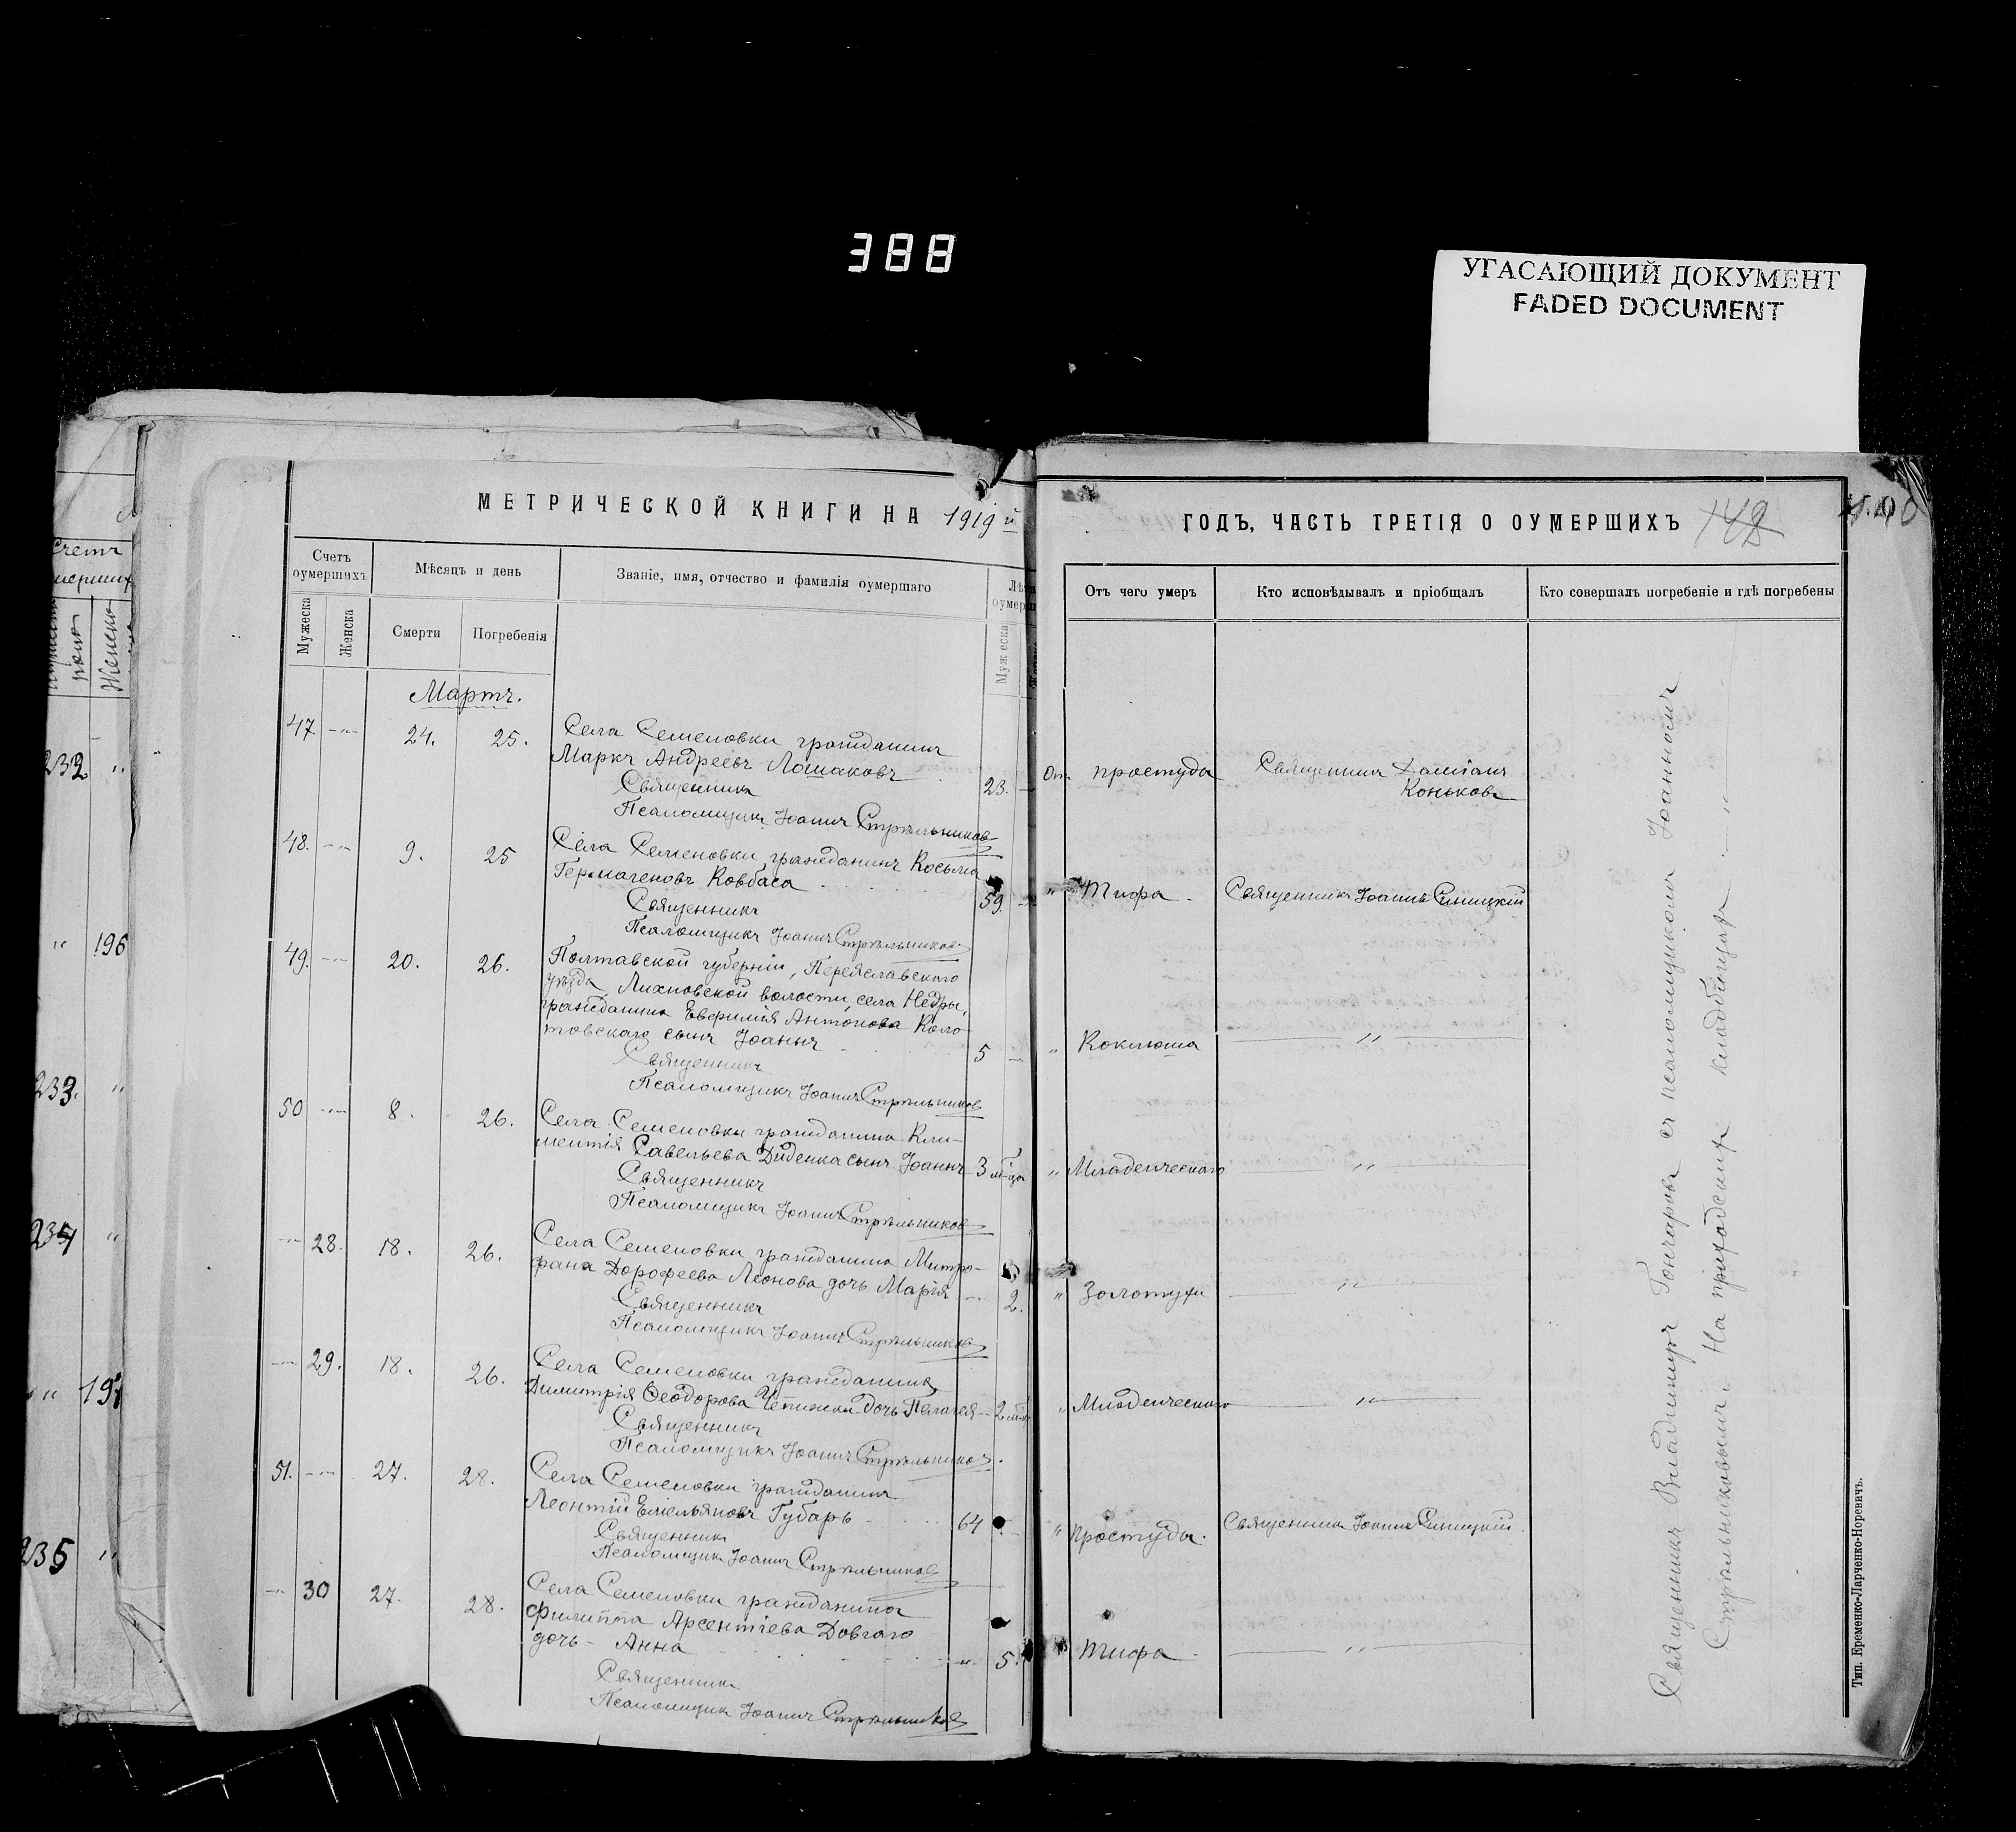 388
УГАСАЮЩИЙ ДОКУМЕНТ
FADED DOCUMENT
МЕТРИЧЕСКОЙ КНИГИ НА 1919 й
Счетъ оумершихъ
Мѣсяцъ и день
Званіе, имя, отчество и фамилія оумершаго
Мужеска
Женска
Смерти
Погребенія
Муж еска
Мартъ.
47. 24. 25.
Села Семеновки гражданинъ
Маркъ Андреевъ Лошаковъ
23.
Священникъ
Псаломщикъ Іоаннъ Стрѣльниковъ
48. 9. 25
Села Семеновки, гражданинъ Косьма
Гермагеновъ Ковбаса
59.
Священникъ
Псаломщикъ Іоаннъ Стрѣльниковъ
49. 20. 26.
Полтавской губерніи, Переяславского
уѣзда, Лихновской волости, села Недры,
гражданина Евфимія Антонова Коло-
товскаго сынъ Іоаннъ
5
Священникъ
Псаломщикъ Іоаннъ Стрѣльниковъ
50 8. 26.
Села Семеновки гражданина Кли-
ментія Савельева Диденка сынъ Іоаннъ
3 мѣ-ца
Священникъ
Псаломщикъ Іоаннъ Стрѣльниковъ
28. 18. 26.
Села Семеновки гражданина Митро-
фана Дорофеева Леонова дочь Марія
2.
Священникъ
Псаломщикъ Іоаннъ Стрѣльниковъ
29. 18. 26.
Села Семеновки гражданина
Димитрія Ѳеодорова дочь Пелагея
Священникъ
Псаломщикъ Іоаннъ Стрѣльниковъ.
51. 27. 28.
Села Семеновки гражданинъ
Леонтій Емельяновъ Губарь
64
Священник
Псаломщик Іоаннъ Стрѣльниковъ
30 27. 28.
Села Семеновки гражданина
Филиппа Арсентіева Довгаго
дочь - Анна
5.
Священникъ
Псаломщик Іоаннъ Стрѣльниковъ
232 "
" 196
233. "
234 "
235 "
ГОДЪ, ЧАСТЬ ТРЕТІЯ О ОУМЕРШИХЪ
142
Отъ чего умеръ
Кто исповѣдывалъ и пріобщалъ
Кто совершалъ погребеніе и гдѣ погребены
От простуды
Священникъ Даміанъ
Коньковъ
" Тифа
Священникъ Іоаннъ Синицкій
" Коклюша "
" Младенческаго "
" Золотухи "
" Младенческаго "
" Простуды.
Священникъ Іоаннъ Синицкій.
Тифа "
Священникъ Владимиръ Гончаровъ съ псаломщикомъ Іоанномъ
Стрѣльниковымъ. На приходскихъ кладбищахъ
Тип. Еременко-Ларченко-Норевичъ.